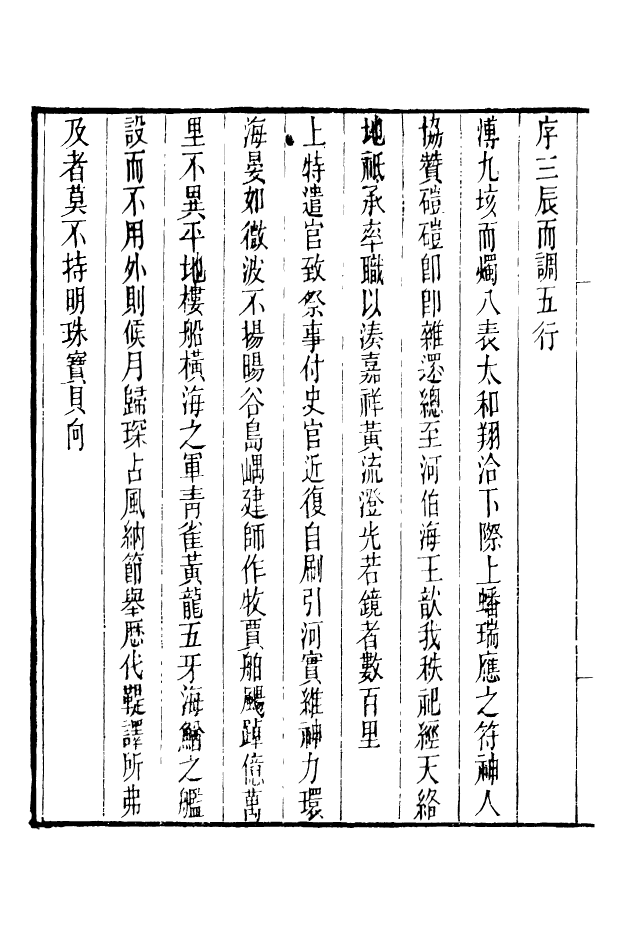 序三辰而調五行
溥九垓而燭八表太和翔洽下際上蟠瑞應之符神人
協贊磑磑卽卽雜還總至河伯海王歆我秩祀經天絡
地祇承率職以湊嘉祥黃流澄光若鏡者數百里
上特遣官致祭事付史官近復自刷引河實維神力環
海晏如微波不揚暘谷島嵎建師作牧賈舶颺踔億萬
里不異平地樓船橫海之軍青雀黃龍五牙海鰌之艦
設而不用外則候月歸琛占風納節舉歷代鞮譯所弗
及者莫不持明珠寶貝向